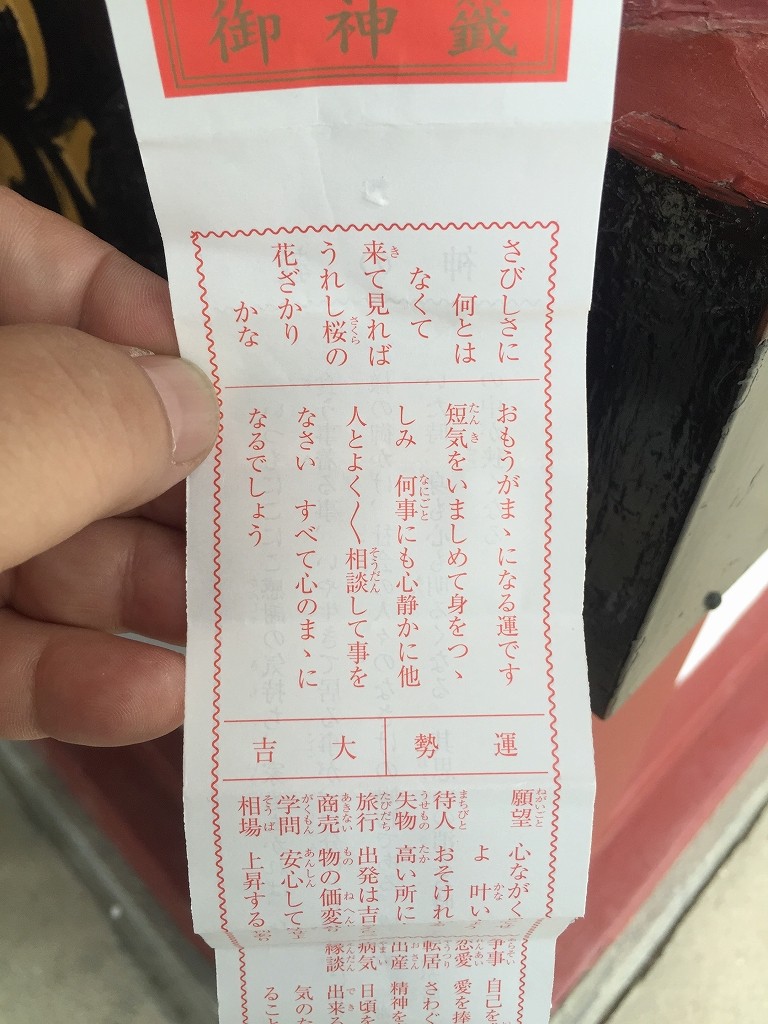 御神籤
さびしさに
何とは
なくて
来て見れば
うれし桜の
花ざかり
かな
おもうがまゝになる運です
短気をいましめて身をつゝ
しみ 何事にも心静かに他
人とよく〱相談して事を
なさい すべて心のまゝに
なるでしょう
運勢 大吉
願望 心ながく
よ 叶い
待人 おそけれ
失物 高い所に
旅行 出発は吉
商売 物の価変
学問 安心して
相場 上昇する
争事 自己を
恋愛 愛を捧
転居 さわぐ
出産 精神を
病気 日頃を
縁談 出来る
気のた
ること